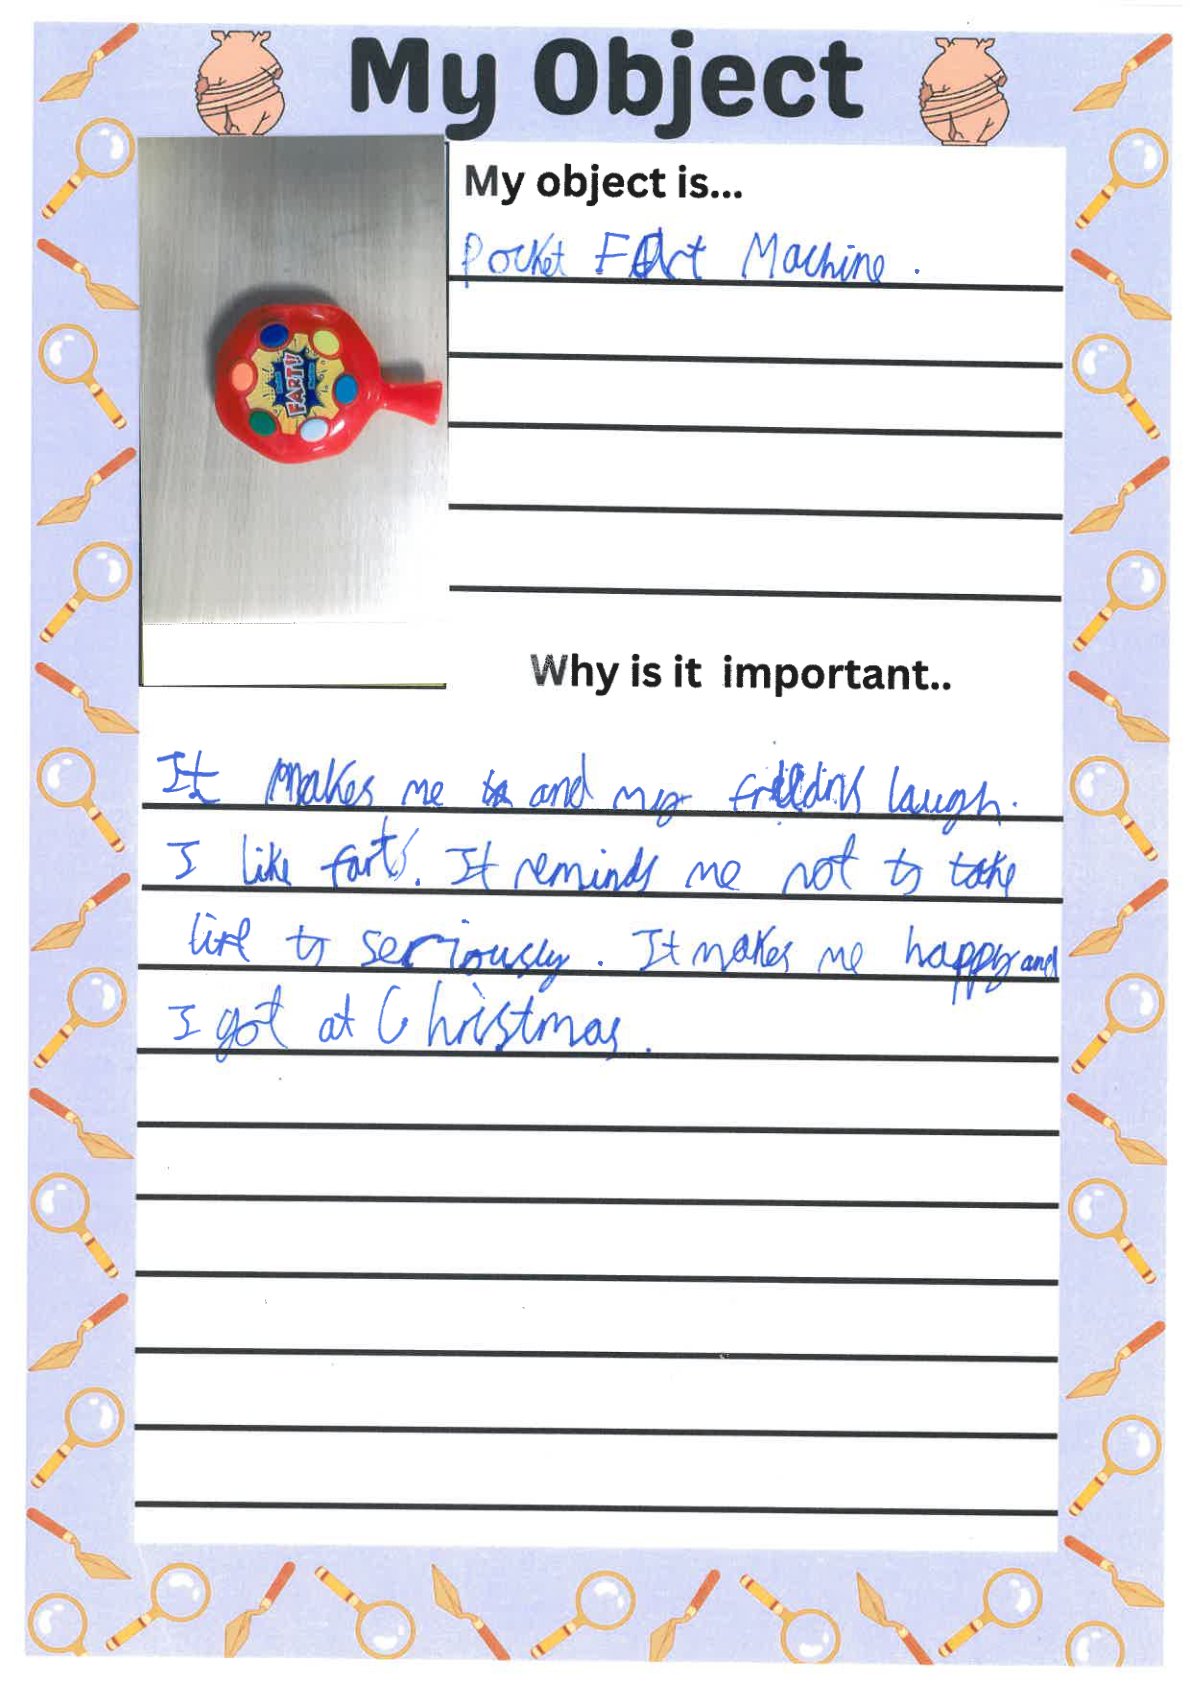 My Object
My object is...
Pocket Fart Machine.
FART!
Why is it important..
It makes me and my freidns laugh.
I like farts. It reminds me not to take
life to seriously. It makes me happy and
I got at Christmas.